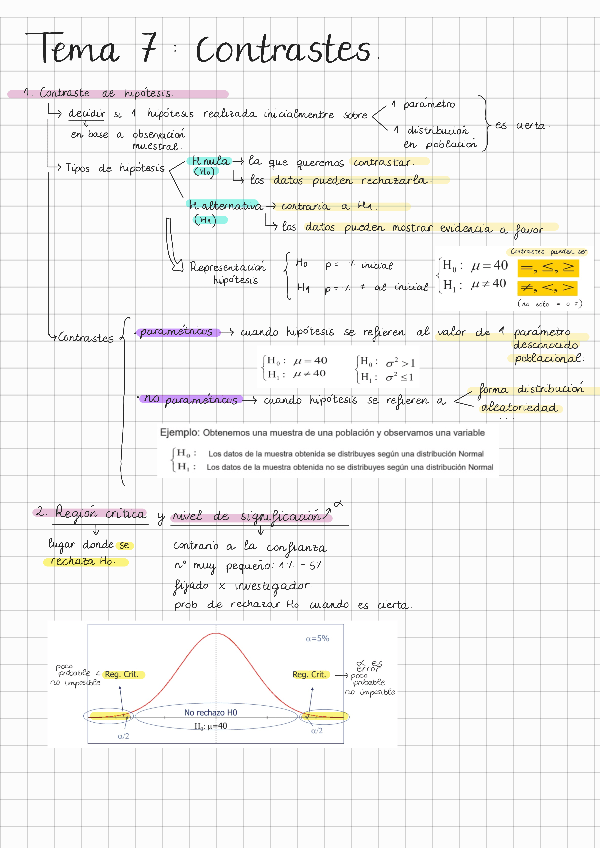 Tema 7: Contrastes.
1. Contraste de hipótesis.
decidir si 1 hipótesis realizada inicialmente sobre
1 parámetro
1 distribución en población
es cierta.
en base a observación muestral.
Tipos de hipótesis
H nula (H0) → la que queremos contrastar.
los datos pueden rechazarla.
H alternativa (H1) → contraria a H1.
los datos pueden mostrar evidencia a favor
Representación hipótesis
H0 p = % inicial
H1 p = % ≠ al inicial
H0: μ = 40
H1: μ ≠ 40
Contrastes pueden ser
=, ≤, ≥
≠, <, >
Contrastes
paramétricos → cuando hipótesis se refieren al valor de 1 parámetro
desconocido
poblacional.
H0: μ = 40
H1: μ ≠ 40
H0: σ² > 1
H1: σ² ≤ 1
no paramétricos → cuando hipótesis se refieren a
forma distribución
aleatoriedad
...
Ejemplo: Obtenemos una muestra de una población y observamos una variable
H0: Los datos de la muestra obtenida se distribuyes según una distribución Normal
H1: Los datos de la muestra obtenida no se distribuyes según una distribución Normal
2. Región crítica y nivel de significación α
lugar donde se
rechaza H0.
contrario a la confianza
nº muy pequeño: 1% - 5%
fijado x investigador
prob de rechazar H0 cuando es cierta.
α=5%
poco
probable
no imposible
Reg. Crit.
Reg. Crit.
α es
error
poco
probable
no imposible
No rechazo H0
H0: μ=40
α/2
α/2